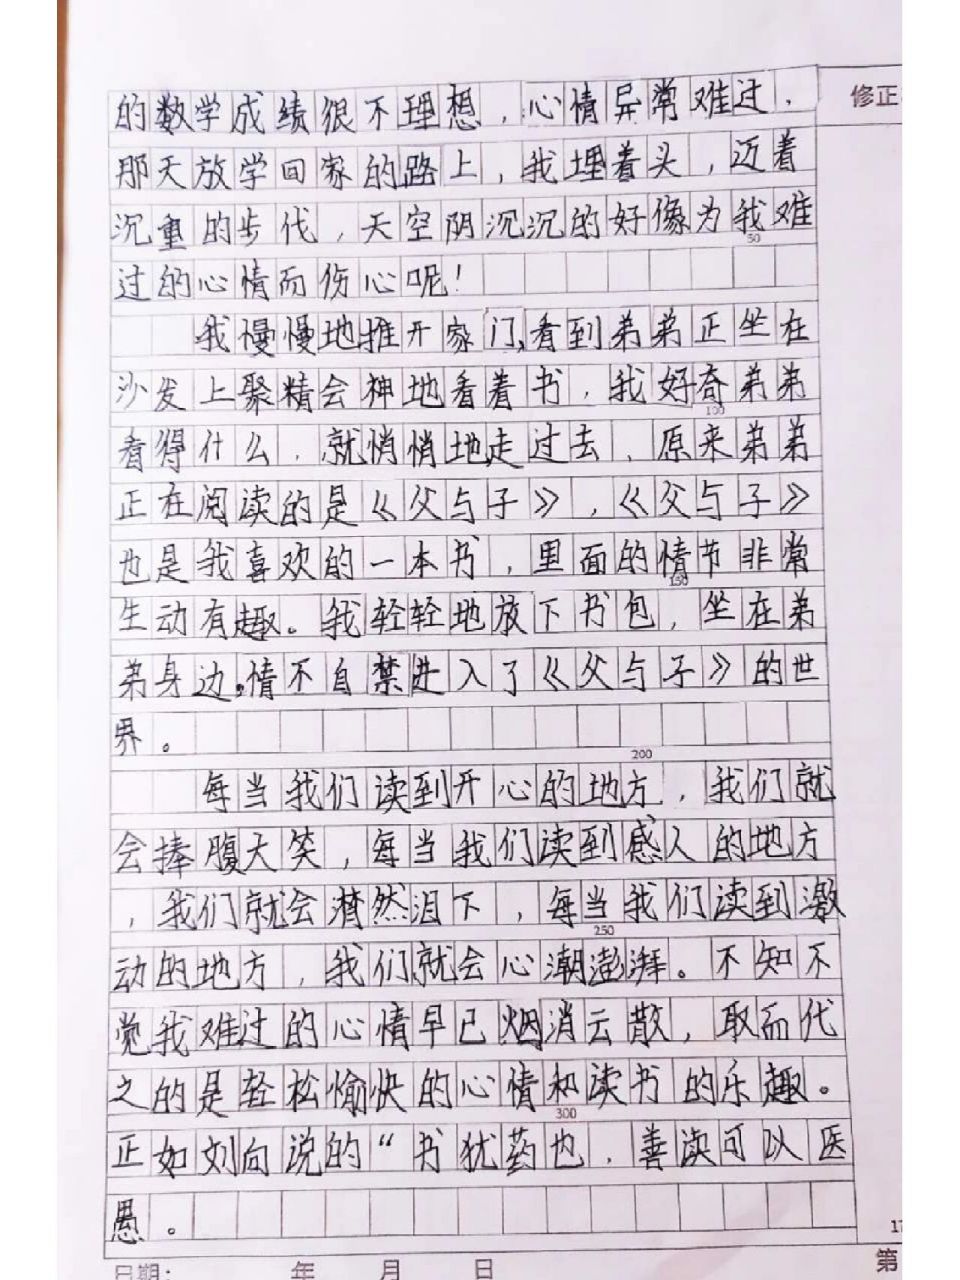 的数学成绩很不理想，心情异常难过．
修正
那天放学回家的路上，我埋着头，迈着
沉重的步代，天空阴沉沉的好像为我难
50
过的心情而伤心呢！
我慢慢地推开家门，看到弟弟正坐在
沙发上聚精会神地看着书，我好奇弟弟
100
看得什么，就悄悄地走过去，原来弟弟
正在阅读的是《父与子》，《父与子》
也是我喜欢的一本书，里面的情节非常
150
生动有趣。我轻轻地放下书包，坐在弟
弟身边，情不自禁进入了《父与子》的世
界。
200
每当我们读到开心的地方，我们就
会捧腹大笑，每当我们读到感人的地方
，我们就会潸然泪下，每当我们读到激
250
动的地方，我们就会心潮澎湃。不知不
觉我难过的心情早已烟消云散，取而代
之的是轻松愉快的心情和读书的乐趣。
300
正如刘向说的“书犹药也，善读可以医
愚。
17
日期： 年 月 日
第